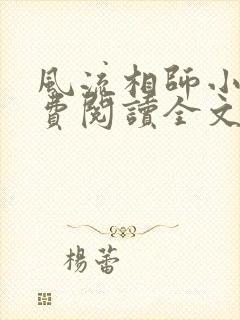 風流相師小
費閱讀全文
楊蕾